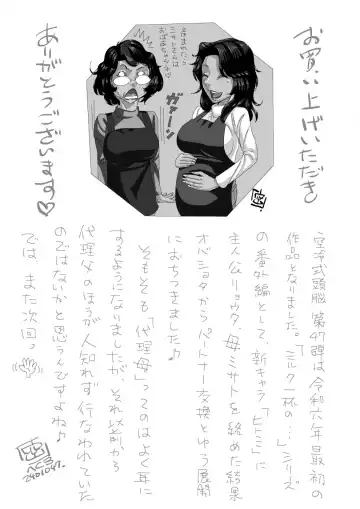 お買い上げいただき
ありがとうございます♡
ミサトさんは
おばあちゃんね♡
ガァーン
空冷式頭脳 第97弾は 令和六年 最初の
作品となりました。「ミルク一杯の…」シリーズ
の番外編として、新キャラ「ヒトミ」に
主人公リョウタ、母ミサトを絡めた結果
オバショタからパートナー交換とゆう展開
におちつきました♪
そもそも「代理母」ってのはよく耳に
するようになりましたが、それ以前から
代理父のほうが人知れず行なわれていた
のではないかと思うんですよね♪
では、また次回っ